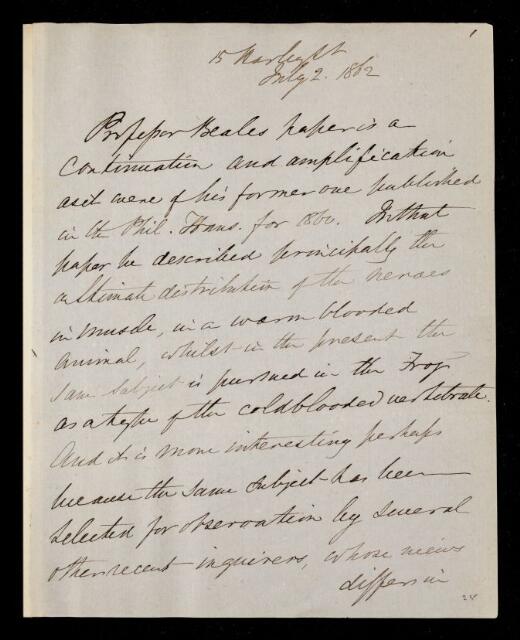 1
15 Harley St
July 2. 1862
Professor Beales paper is a
continuation and amplification
as it were of his former one published
in the Phil. Trans. for 1860. In that
paper he described principally the
ultimate distribution of the nerves
in muscle, in a warm blooded
animal, whilst in the present the
same subject is pursued in the Frog
as a type of the coldblooded vertebrate.
And it is more interesting perhaps
because the same subject has been
selected for observation by several
other recent inquirers, whose views
differ in